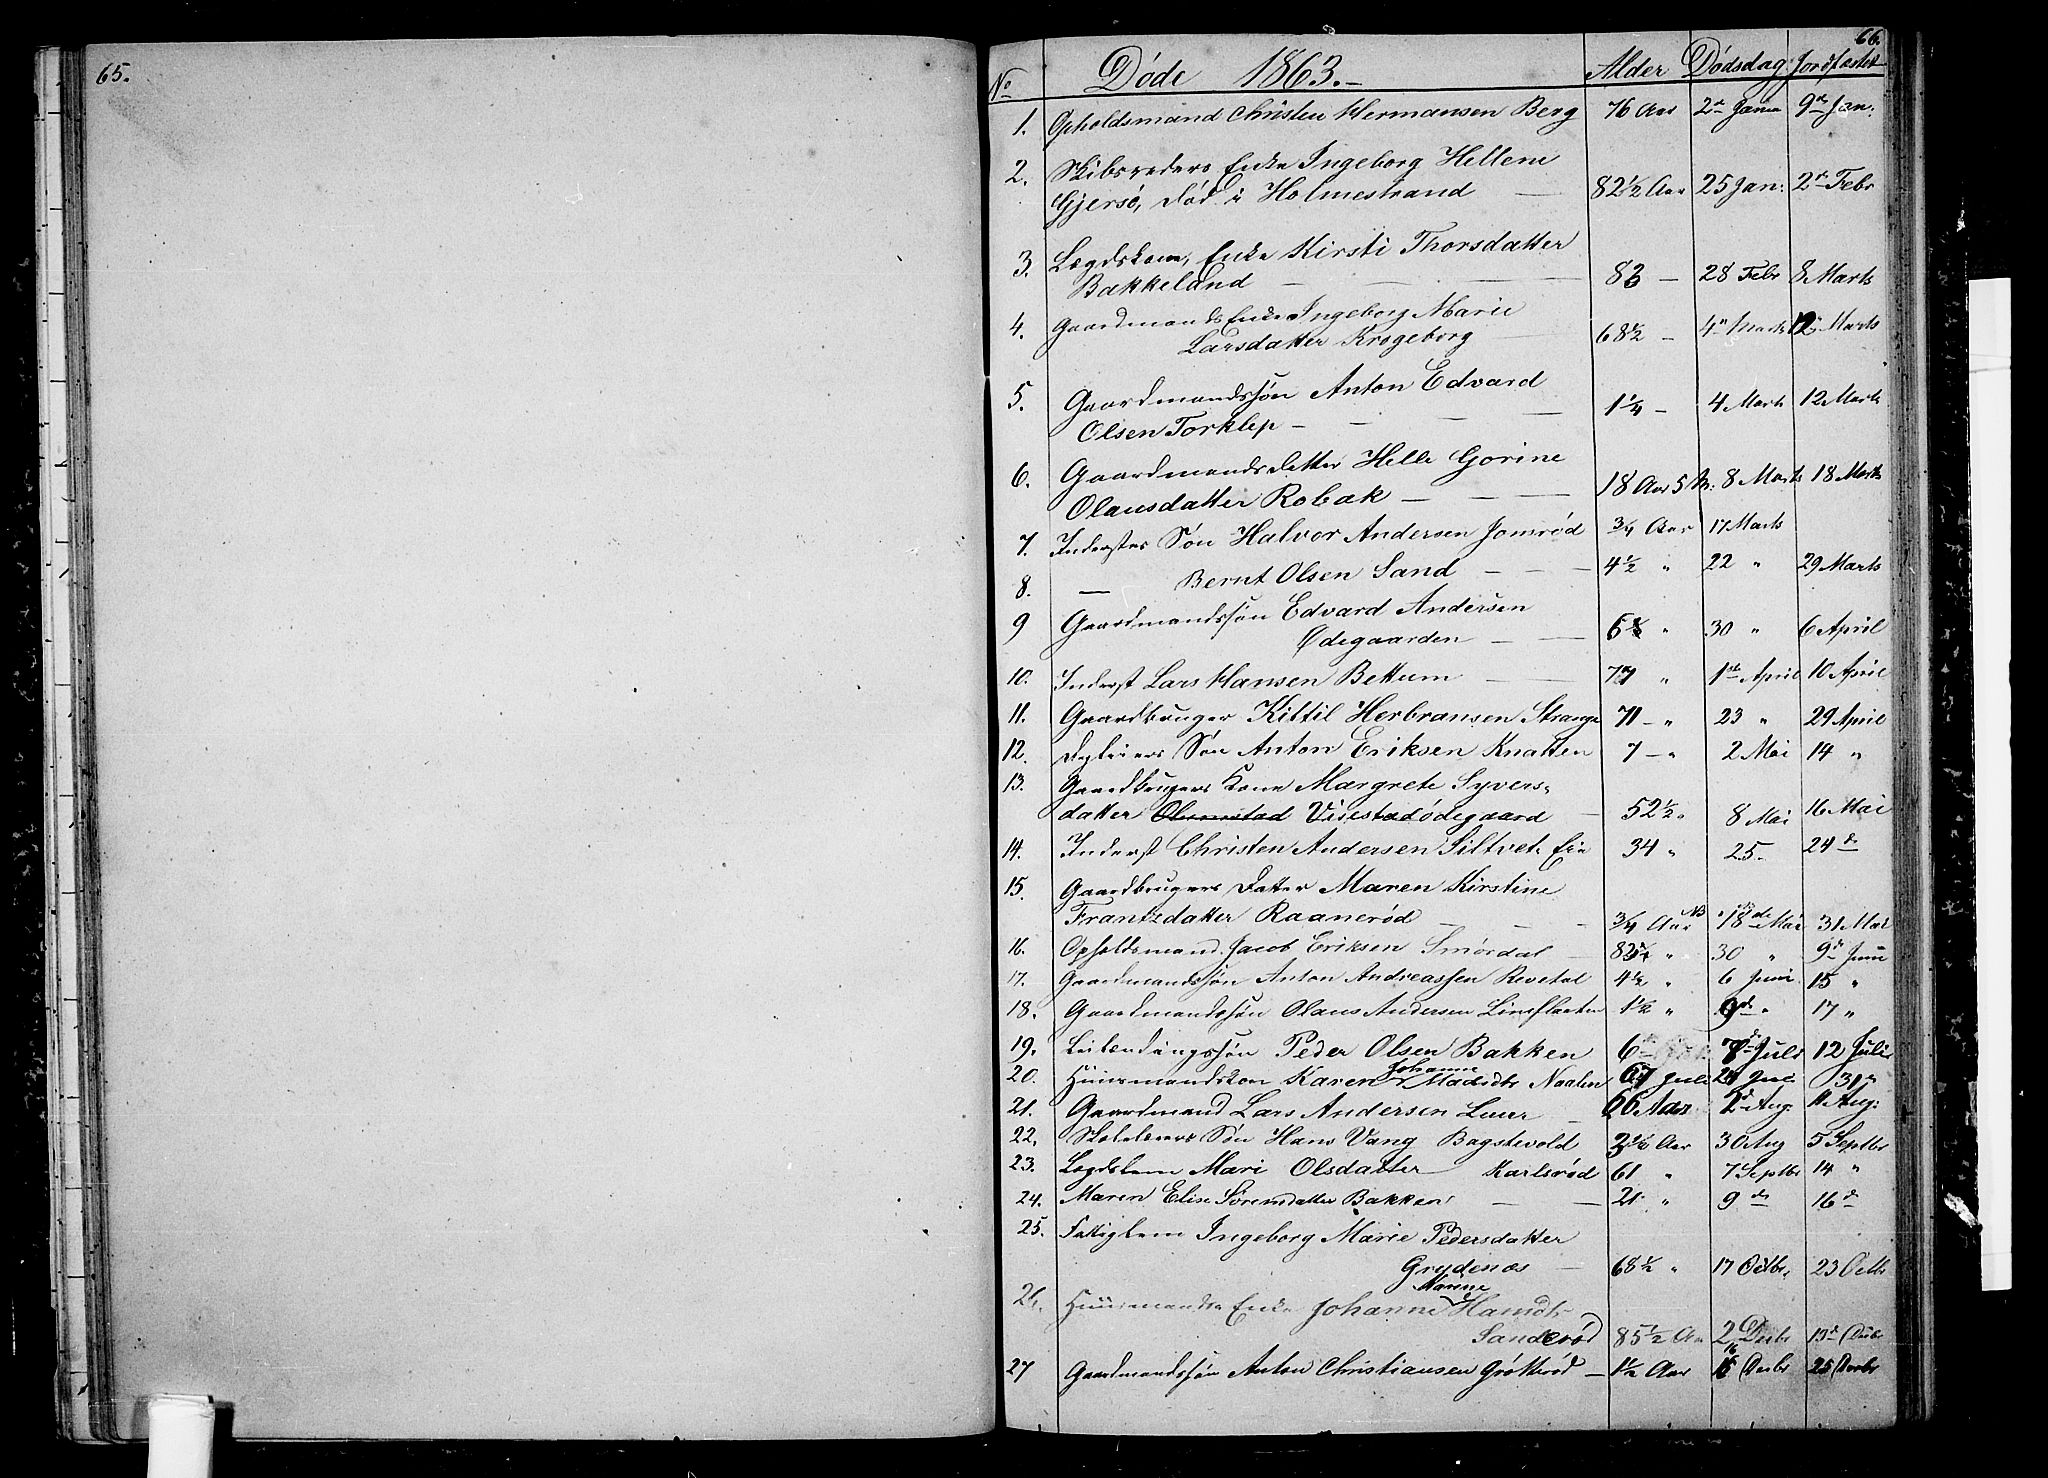 65.
66.
No Døde 1863.- Alder Dødsdag Jordfæstet
1. Opholdsmand Christen Hermansen Berg 76 Aar 2den Janu 9de Jan:
2. Skibsreders Enke Ingeborg Hellene
Gjersø, død i Holmestrand — 82 1/2 Aar 25 Jan: 2den Febr
3. Lægdskone, Enke Kirsti Thorsdatter
Bakkeland — — — 83 — 28 Febr 8 Marts
4. Gaardmands Enke Ingeborg Marie
Larsdatter Krogeborg — 68 1/2 — 4" Marts 12" Marts
5. Gaardmandssøn Anton Edvard
Olsen Torklep — — — 1 1/4 — 4 Marts 12 Marts
6. Gaardmandsdatter Helle Gorine
Olausdatter Robak — — — 18 Aar 5 M: 8 Marts 18 Marts
7. Inderstes Søn Halvor Andersen Jomrød 3/4 Aar 17 Marts
8. — Bernt Olsen Sand — — — 4 1/2 " 22 " 29 Marts
9 Gaardmandssøn Edvard Andersen
Ødegaarden — — " 30 " 6 April
10. Inderst Lars Hansen Bettum — 77 " 1ste April 10 April
11. Gaardbruger Kittil Herbransen Strange 71 — " 23 " 29 April
12. Søn Anton Eriksen Knatten 7 — " 2 Mai 14 "
13. Gaardbrugers Kone Margrete Syvers-
datter Olumstad Virestadødegaard — 52 1/2 " 8 Mai 16 Mai
14. Inderst Christen Andersen Siltvet 34 " 25. 24de
15. Gaardbrugers Datter Maren Kirstine
Frantzdatter Raanerød — — — 3/4 Aar NB 18de Mai 31 Mai
16. Opholdsmand Jacob Eriksen Smørdal — " 30 " 9de Juni
17. Gaardmandssøn Anton Andreassen Revetal 4 1/2 " 6 Juni 15 "
18. Gaardmandssøn Olaus Andersen Linsflaaten 1 1/2 " 9de " 17 "
19. Leilendingssøn Peder Olsen Bakken 6 Juli 12 Juli
20. Huusmandskon Karen Johanne Madsdtr Naalen 67 24 Jul 31 "
21. Gaardmand Lars Andersen Luur — 66 Aar 2d Aug: 11 Aug:
22. Søn Hans Vang Bogstvold Aar 30 Aug 5 Septbr
23. Lægdslem Mari Olsdatter Karlsrød 61 " 7 Septbr 14 "
24. Maren Elise Sørensdatter Bakken — — 21 " 9 de 16 d
25. Fattiglem Ingeborg Marie Pedersdatter
Grydenæs — 68 1/2 " 17 Octbr. 23 Octbr
26. Huusmands Enke Johanne Hansdtr
Sanderød 85 1/2 Aar 2 Decbr 13de Decbr
27 Gaardmandssøn Anton Christiansen Grøtterød — 1 1/2 Aar 16 Decbr 25 Decbr